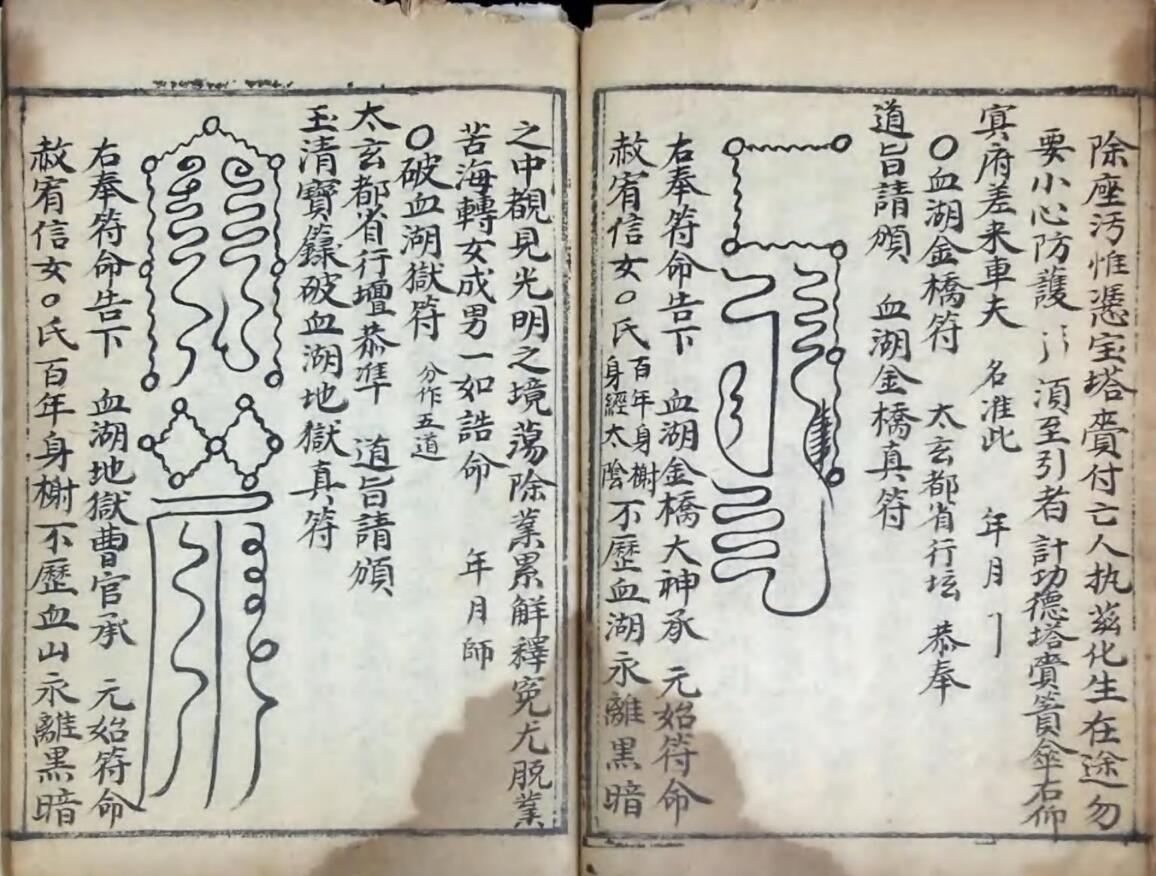 除座汚惟憑宝塔賫付亡人执茲化生在途勿
要小心防護 引 湏至引者 計功德塔賫簀傘右仰
冥府差来車夫 名准此 年月
〇血湖金橋符 太玄都省行坛 恭奉
道旨請頒 血湖金橋真符
右奉符命告下 血湖金橋大神承 元始符命
赦宥信女〇氏 百年身榭 身經太陰 不歷血湖永離黒暗
之中覩見光明之境蕩除業累解釋寃尤脱業
苦海轉女成男一如誥命 年月師
〇破血湖獄符 分作五道
太玄都省行壇恭準 道旨請頒
玉清寶籙破血湖地獄真符
右奉符命告下 血湖地獄曹官承 元始符命
赦宥信女〇氏百年身榭不歷血山永離黒暗